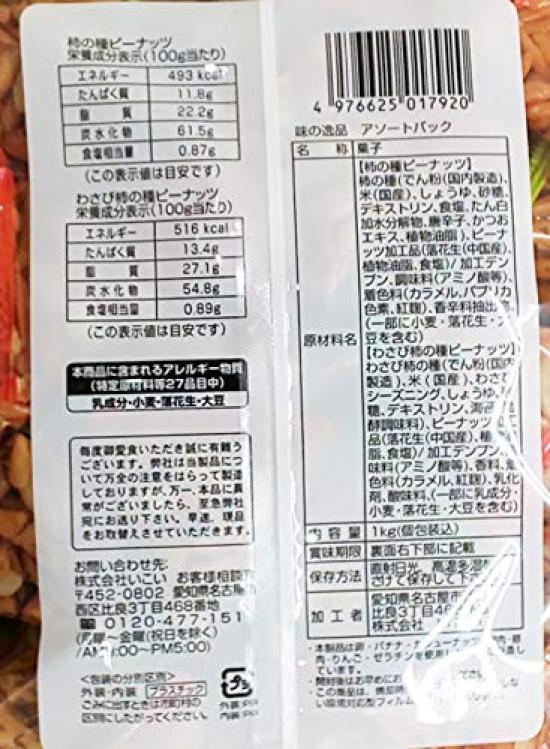 柿の種ピーナッツ
栄養成分表示(100g当たり)
エネルギー 493 kcal
たんぱく質 11.8g
脂質 22.2g
炭水化物 61.5g
食塩相当量 0.87g
(この表示値は目安です)
わさび柿の種ピーナッツ
栄養成分表示(100g当たり)
エネルギー 516 kcal
たんぱく質 13.4g
脂質 27.1g
炭水化物 54.8g
食塩相当量 0.89g
(この表示値は目安です)
本商品に含まれるアレルギー物質
(特定原材料等27品目中)
乳成分・小麦・落花生・大豆
毎度御愛食いただき誠に有難う
ございます。弊社は当製品につ
いて万全の注意をはらって製造
しておりますが、万一、本品に異
常がございましたら、至急弊社
宛にお送り下さい。早速、現品
をお取替えさせていただきます。
お問い合わせ先:
株式会社いこい お客様相談
〒452-0802 愛知県名古屋
西区比良3丁目468番地
0120-477-151
(月曜〜金曜(祝日を除く)
/AM9:00〜PM5:00)
<包装の分別区分>
外装・内装 プラスチック
ごみに出すときは市町村の
区別にしたがってください。
プラ
外装:PP
内装:PP
4 976625 017920
味の逸品 アソートパック
名称 菓子
原材料名
【柿の種ピーナッツ】
柿の種(でん粉(国内製造)、
米(国産)、しょうゆ、砂糖、
デキストリン、食塩、たん白
加水分解物、唐辛子、かつお
エキス、植物油脂)、ピーナ
ッツ加工品(落花生(中国産)、
植物油脂、食塩)/加工デン
プン、調味料(アミノ酸等)、
着色料(カラメル、パプリカ
色素、紅麹)、香辛料抽出
(一部に小麦・落花生・
豆を含む)
【わさび柿の種ピーナッツ】
わさび柿の種(でん粉(国内
製造)、米(国産)、わさび
シーズニング、しょうゆ、
糖、デキストリン、海苔、
酵調味料)、ピーナッツ
品(落花生(中国産)、植
脂、食塩)/加工デンプン、
味料(アミノ酸等)、香料、
色料(カラメル、紅麹)、乳化
剤、酸味料、(一部に乳成分・
小麦・落花生・大豆を含む)
内容量 1kg(個包装込)
賞味期限 裏面右下部に記載
保存方法 直射日光、高温多湿
さけて保存して下
加工者 愛知県名古屋市
比良3丁目46
株式会社
・本製品は卵・バナナ・
肉・りんご・ゼラチンを使用
ています。
・開封後はお早めに
・この商品は、
い環境対応型フィルム